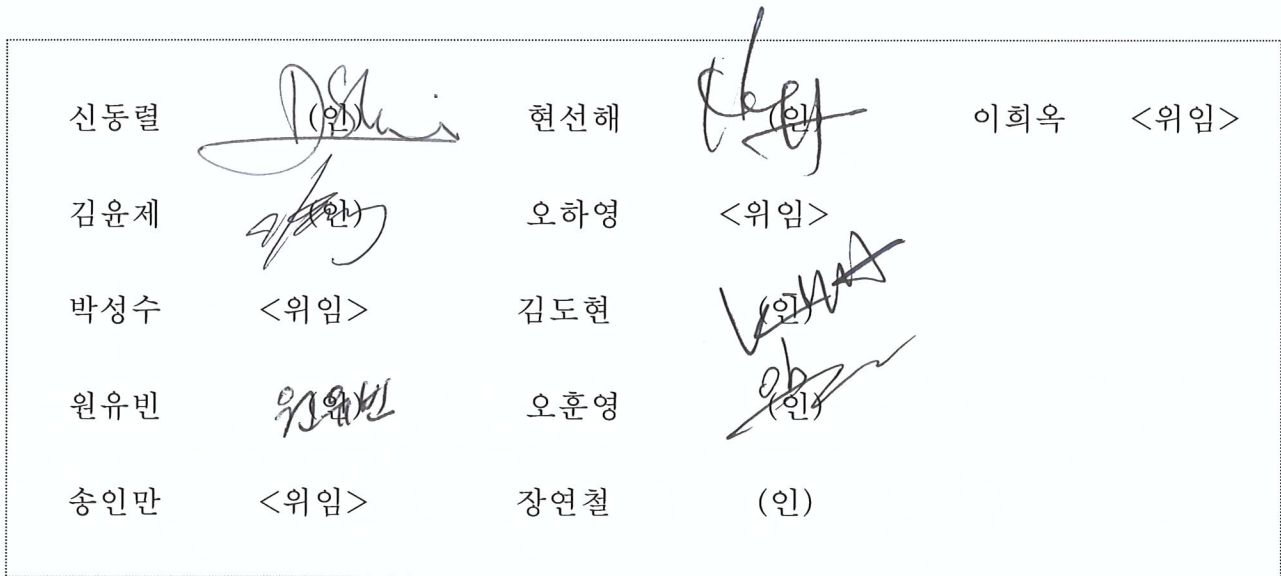 신동렬 (인) 현선해 (인) 이희옥 <위임>
김윤제 (인) 오하영 <위임>
박성수 <위임> 김도현 (인)
원유빈 원유빈 (인) 오훈영 (인)
송인만 <위임> 장연철 (인)